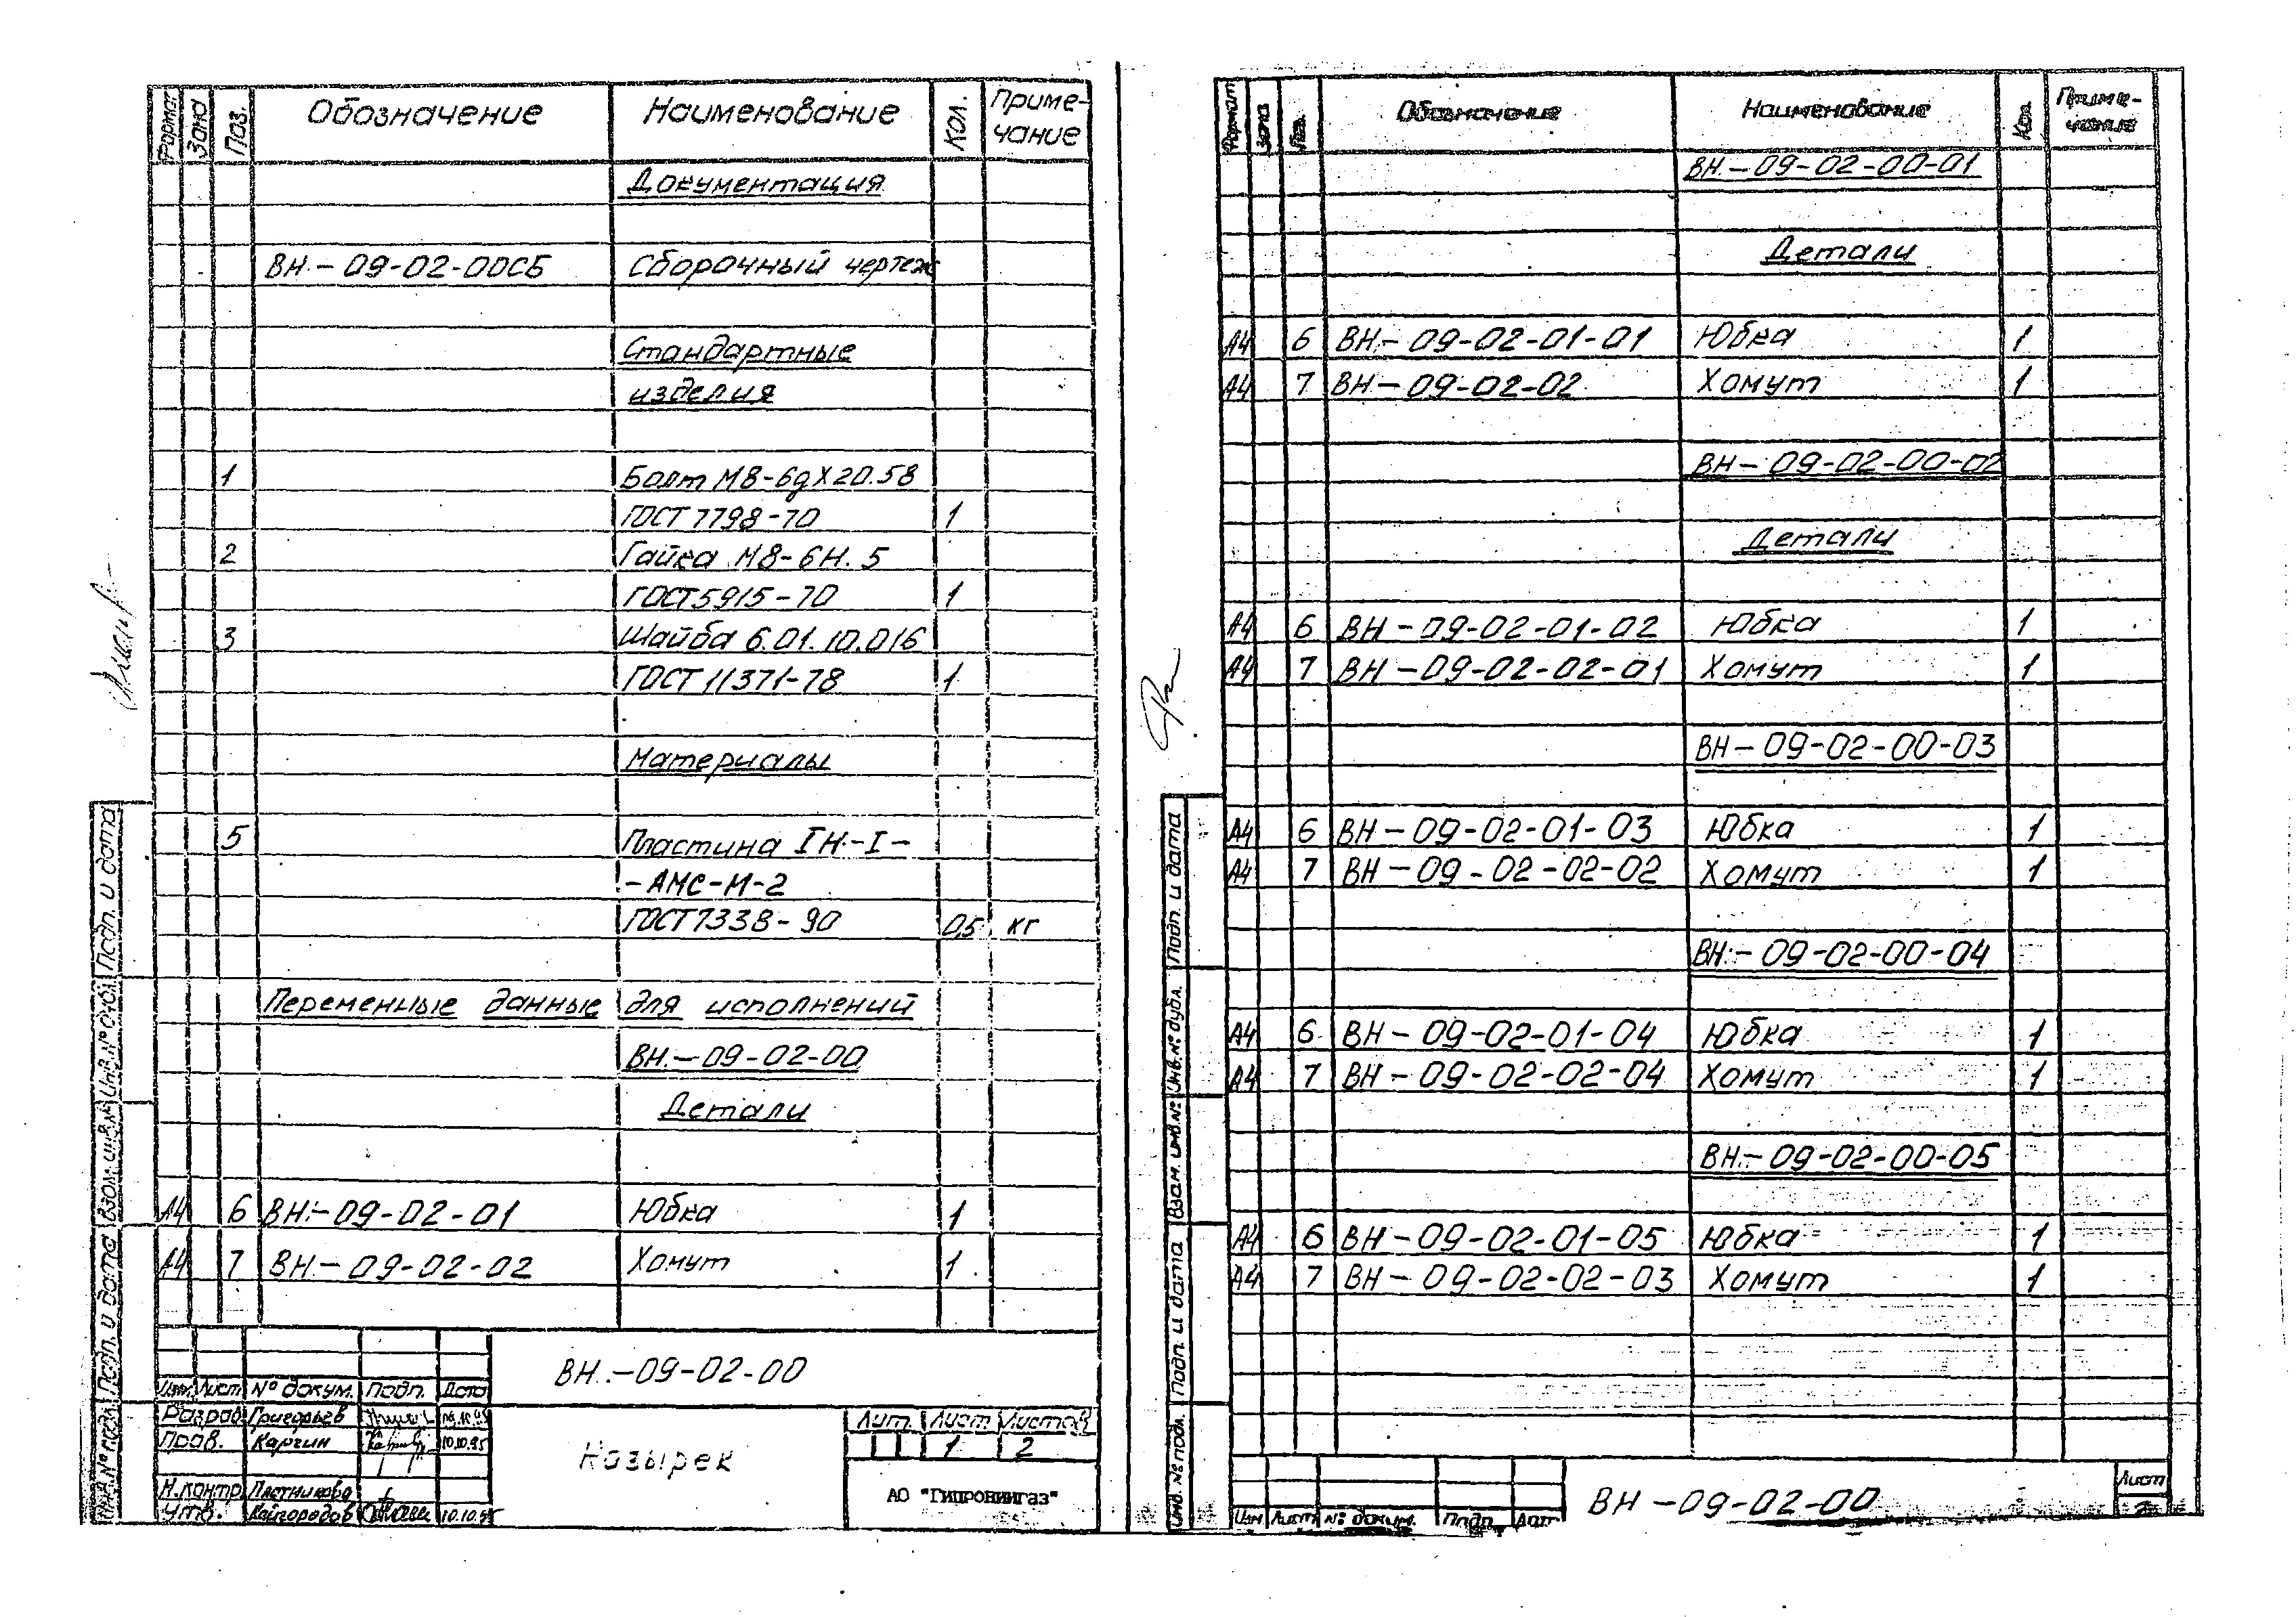 Формат Зона Поз. Обозначение Наименование Кол. Приме-
чание
Документация
ВН.-09-02-00СБ Сборочный чертеж
Стандартные
изделия
1 Болт М8-6gХ20.58
ГОСТ 7798-70 1
2 Гайка М8-6Н.5
ГОСТ 5915-70 1
3 Шайба 6.01.10.016
ГОСТ 11371-78 1
Материалы
5 Пластина IН-I-
-АМС-М-2
ГОСТ 7338-90 0,5 кг
Переменные данные для исполнений
ВН.-09-02-00
Детали
А4 6 ВН.-09-02-01 Юбка 1
А4 7 ВН.-09-02-02 Хомут 1
ВН.-09-02-00
Изм. Лист № докум. Подп. Дата
Разраб. Григорьев
Пров. Каргин 10.10.95
Н.контр.
Утв. 10.10.95
Козырек
Лит. Лист Листов
1 2
АО "Гипрониигаз"
Инв.№ подл. Подп. и дата Взам. инв.№ Инв.№ дубл. Подп. и дата
Формат Зона Поз. Обозначение Наименование Кол. Приме-
чание
ВН.-09-02-00-01
Детали
А4 6 ВН.-09-02-01-01 Юбка 1
А4 7 ВН-09-02-02 Хомут 1
ВН-09-02-00-02
Детали
А4 6 ВН-09-02-01-02 Юбка 1
А4 7 ВН-09-02-02-01 Хомут 1
ВН-09-02-00-03
А4 6 ВН-09-02-01-03 Юбка 1
А4 7 ВН-09-02-02-02 Хомут 1
ВН.-09-02-00-04
А4 6 ВН-09-02-01-04 Юбка 1
А4 7 ВН-09-02-02-04 Хомут 1
ВН.-09-02-00-05
А4 6 ВН-09-02-01-05 Юбка 1
А4 7 ВН-09-02-02-03 Хомут 1
Изм Лист № докум. Подп. Дат
ВН-09-02-00
Лист
2
Инв. № подл. Подп. и дата Взам. инв.№ Инв.№ дубл. Подп. и дата